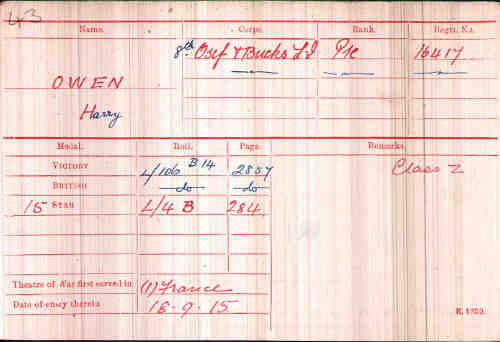 43
Name. Corps. Rank. Regtl. No.
8th Oxf & Bucks LI Pte 16417
OWEN
Harry
Medal. Roll. Page. Remarks.
VICTORY L/106 B14 2857 Class Z
BRITISH do do
15 STAR L/4 B 284.
Theatre of War first served in (1) France
Date of entry therein 18-9-15
K. 1380.